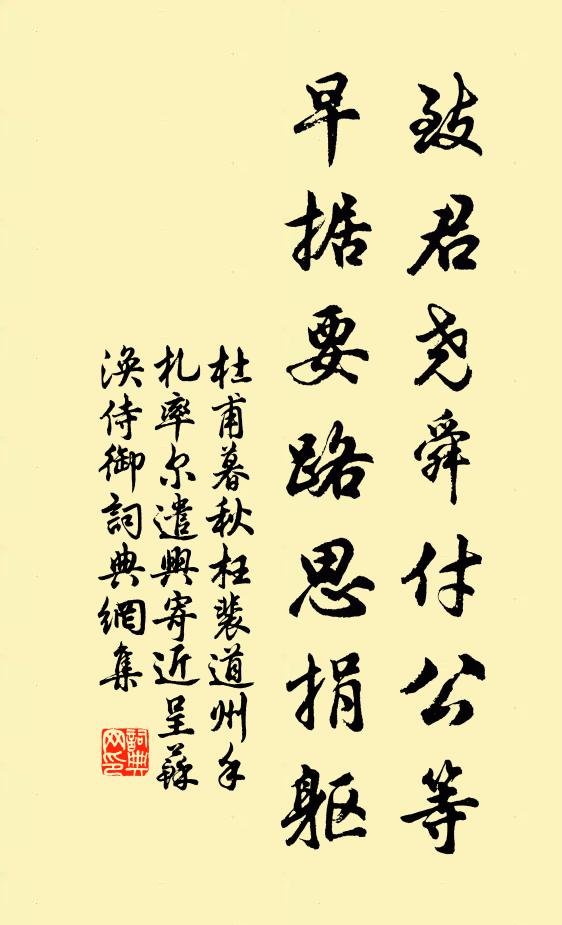 致君尧舜付公等
早据要路思捐躯
杜甫暮秋枉裴道州手
札率尔遣興寄近呈蘇
渙侍御詞典網集
詞典
网印